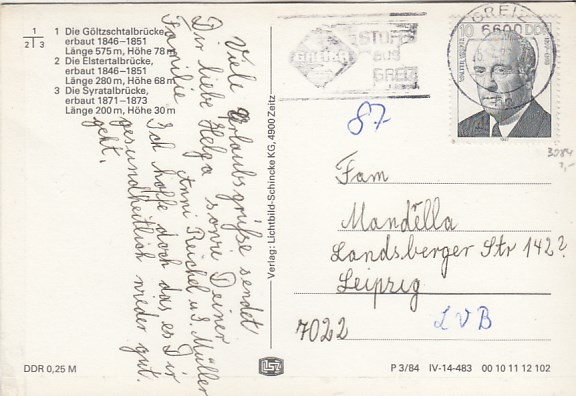 1 Die Göltzschtalbrücke,
erbaut 1846–1851
Länge 575 m, Höhe 78 m
2 Die Elstertalbrücke,
erbaut 1846–1851
Länge 280 m, Höhe 68 m
3 Die Syratalbrücke,
erbaut 1871–1873
Länge 200 m, Höhe 30 m
1
2 3
Viele Urlaubsgrüße sendet
Dir liebe Helga sowie Deiner
Familie Anni Reichel u. S. Müller
Ich hoffe doch das es Dir
gesundheitlich wieder gut
geht.
Verlag: Lichtbild-Schincke KG, 4900 Zeitz
STOFFE
aus
GREIZ
GREIZ
6600
10 DDR
87
3084
Fam
Mandella
Landsberger Str 142?
Leipzig
7022
LVB
DDR 0,25 M
P 3/84 IV-14-483 00 10 11 12 102